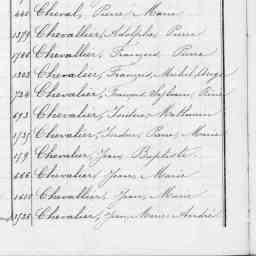 440 Cheval, Pierre Marie
1379 Chevallier, Adolphe Pierre
1766 Chevallier, François Pierre
1303 Chevalier, François, Michel, Ange
724 Chevalier, François Sylvain René
693 Chevalier, Isidore, Mathurin
1737 Chevalier, Isidore Pierre, Marie
179 Chevalier, Jean Baptiste
666 Chevalier, Jean, Marie
1610 Chevallier, Jean, Marie
1726 Chevalier, Jean, Marie, André